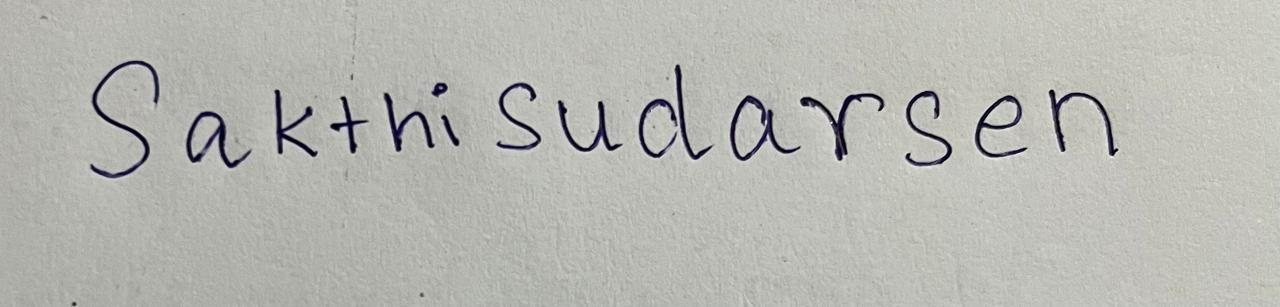 Sakthi sudarsen